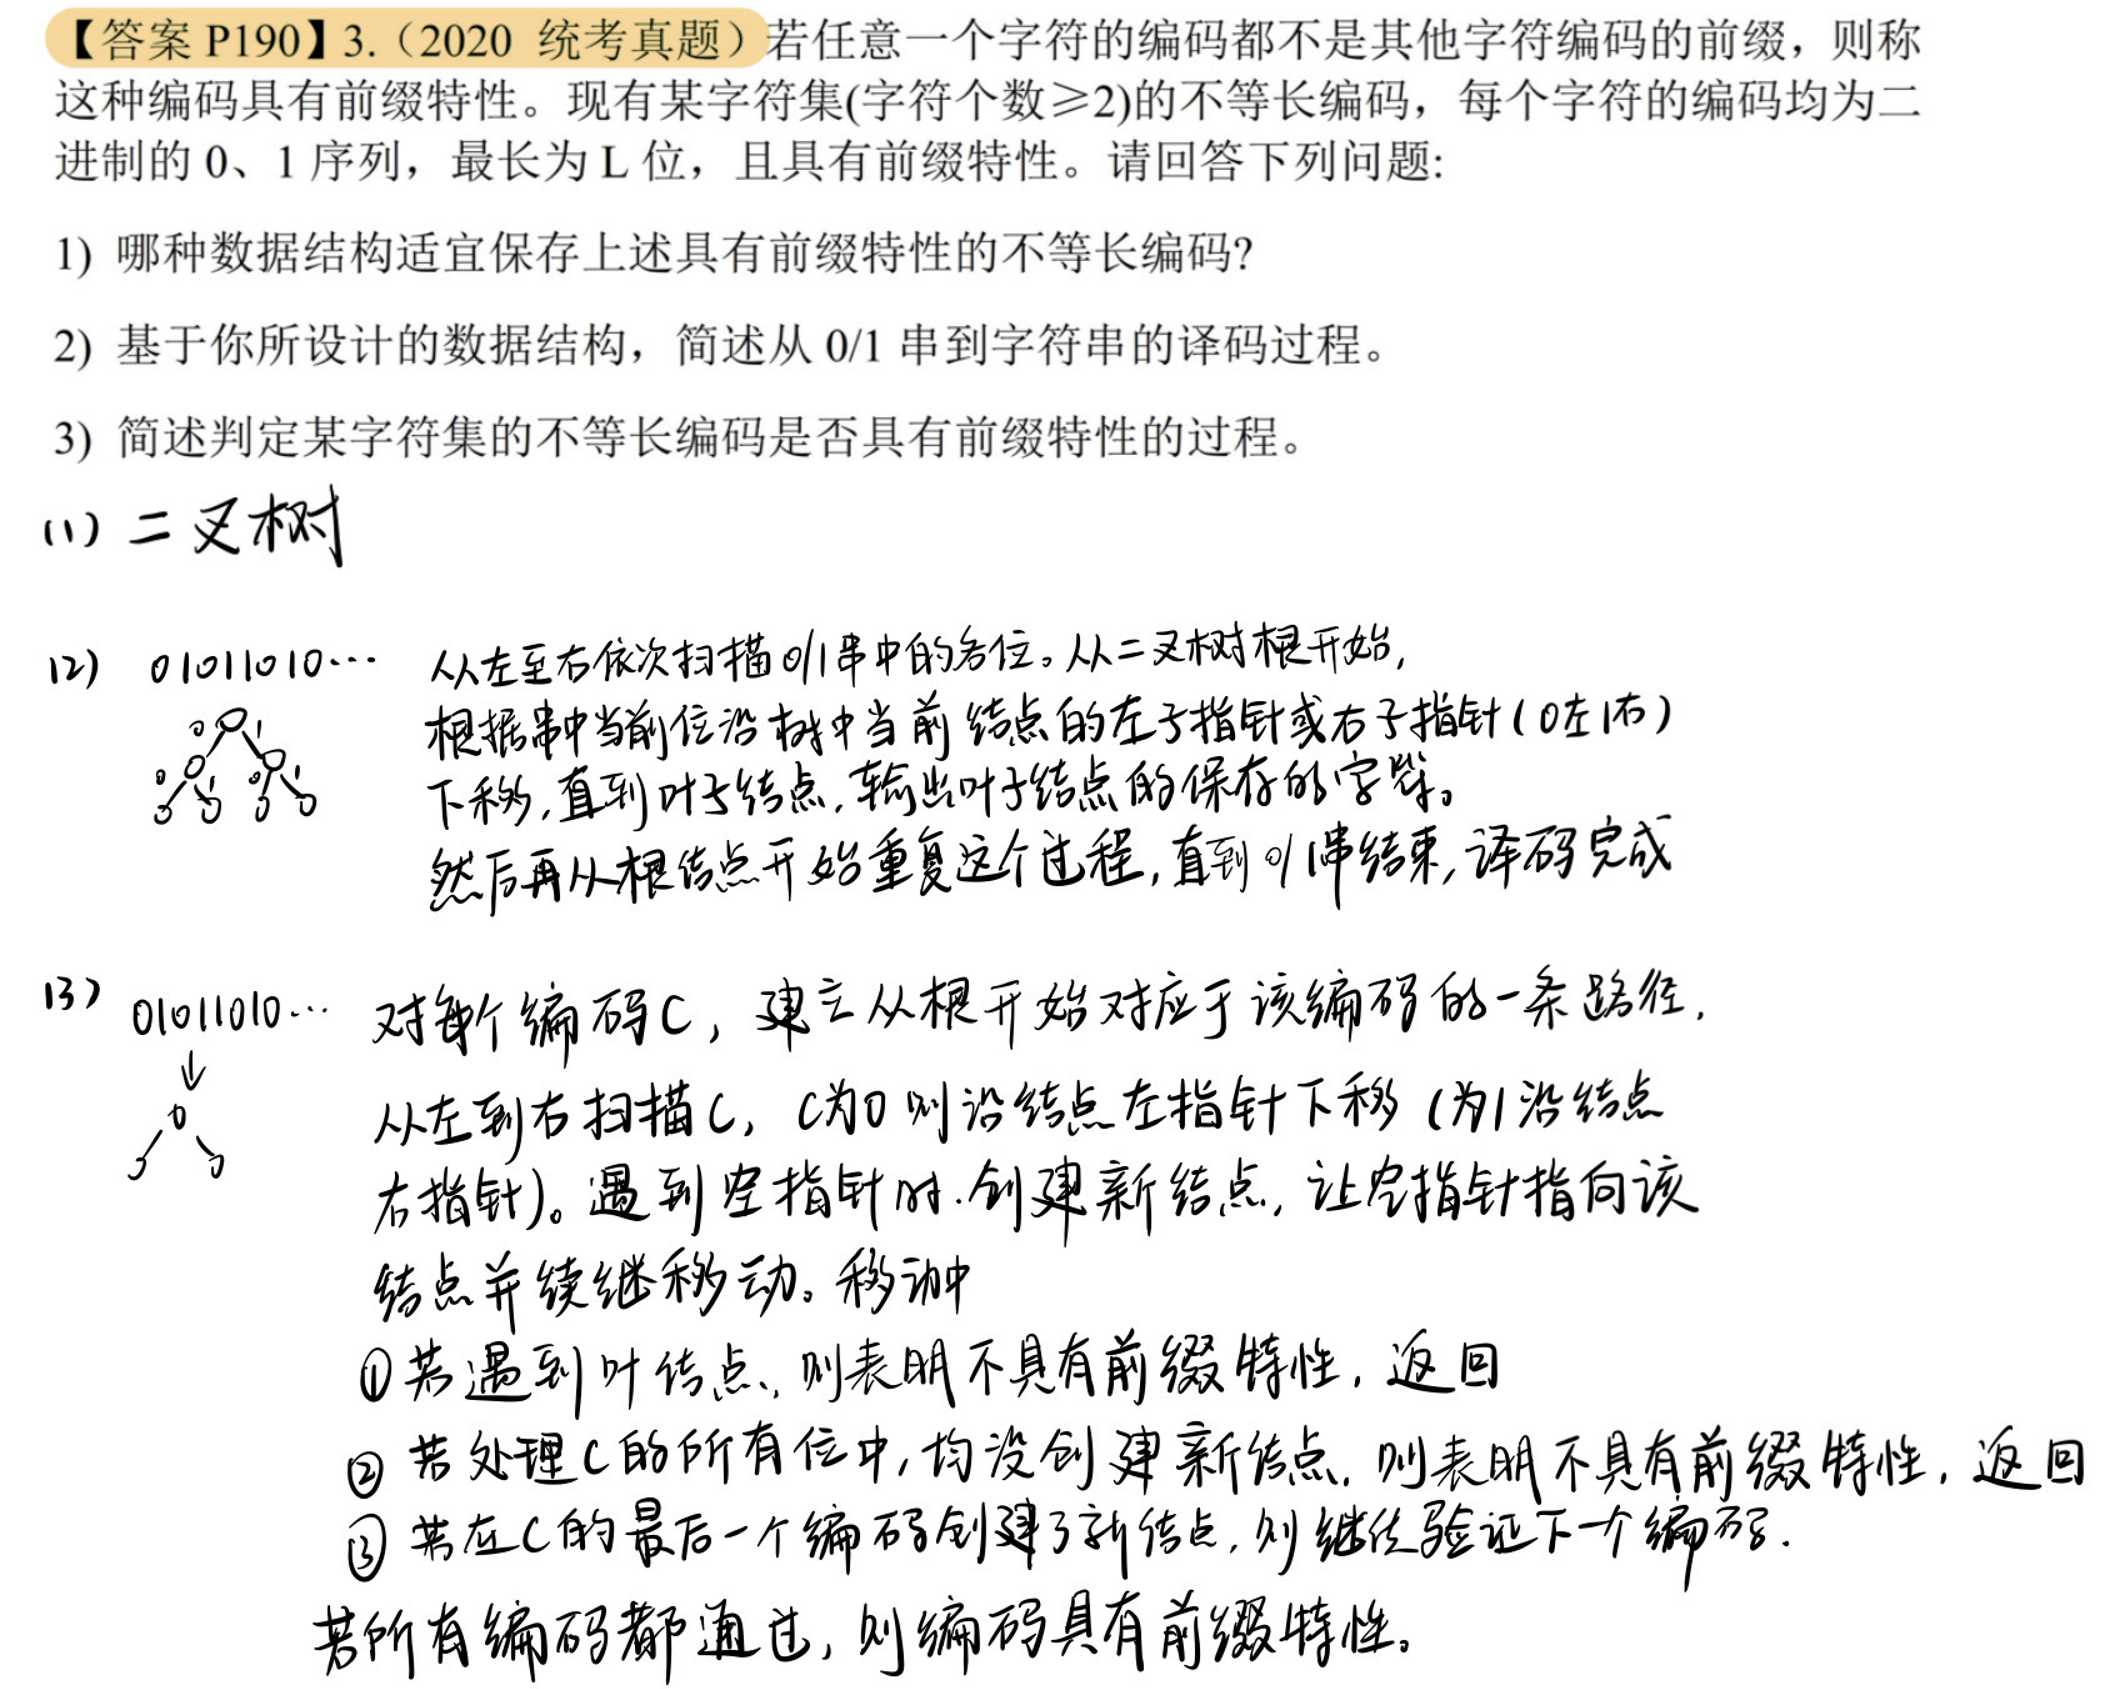 【答案 P190】3.（2020 统考真题）若任意一个字符的编码都不是其他字符编码的前缀，则称
这种编码具有前缀特性。现有某字符集(字符个数≥2)的不等长编码，每个字符的编码均为二
进制的 0、1 序列，最长为 L 位，且具有前缀特性。请回答下列问题:
1) 哪种数据结构适宜保存上述具有前缀特性的不等长编码?
2) 基于你所设计的数据结构，简述从 0/1 串到字符串的译码过程。
3) 简述判定某字符集的不等长编码是否具有前缀特性的过程。
(1) 二叉树
(2) 01011010… 从左至右依次扫描0/1串中的各位。从二叉树根开始,
0 1 根据串中当前位沿树中当前结点的左子指针或右子指针(0左1右)
0 1 0 1 下移,直到叶子结点,输出叶子结点的保存的字符。
然后再从根结点开始重复这个过程,直到0/1串结束,译码完成
(3) 01011010… 对每个编码C, 建立从根开始对应于该编码的一条路径,
从左到右扫描C, C为0则沿结点左指针下移 (为1沿结点
右指针)。遇到空指针时.创建新结点,让空指针指向该
结点并续继移动。移动中
①若遇到叶结点,则表明不具有前缀特性,返回
②若处理C的所有位中,均没创建新结点,则表明不具有前缀特性,返回
③若在C的最后一个编码创建了新结点,则继续验证下一个编码.
若所有编码都通过,则编码具有前缀特性。